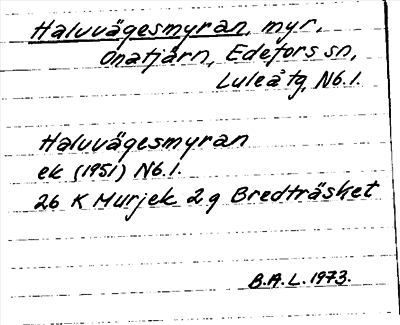 Haluvägesmyran, myr,
Onatjärn, Edefors sn,
Luleå tg, Nb.1.
Haluvägesmyran
ek (1951) Nb.1.
26 K Murjek 2 g Bredträsket
B.A.L. 1973.